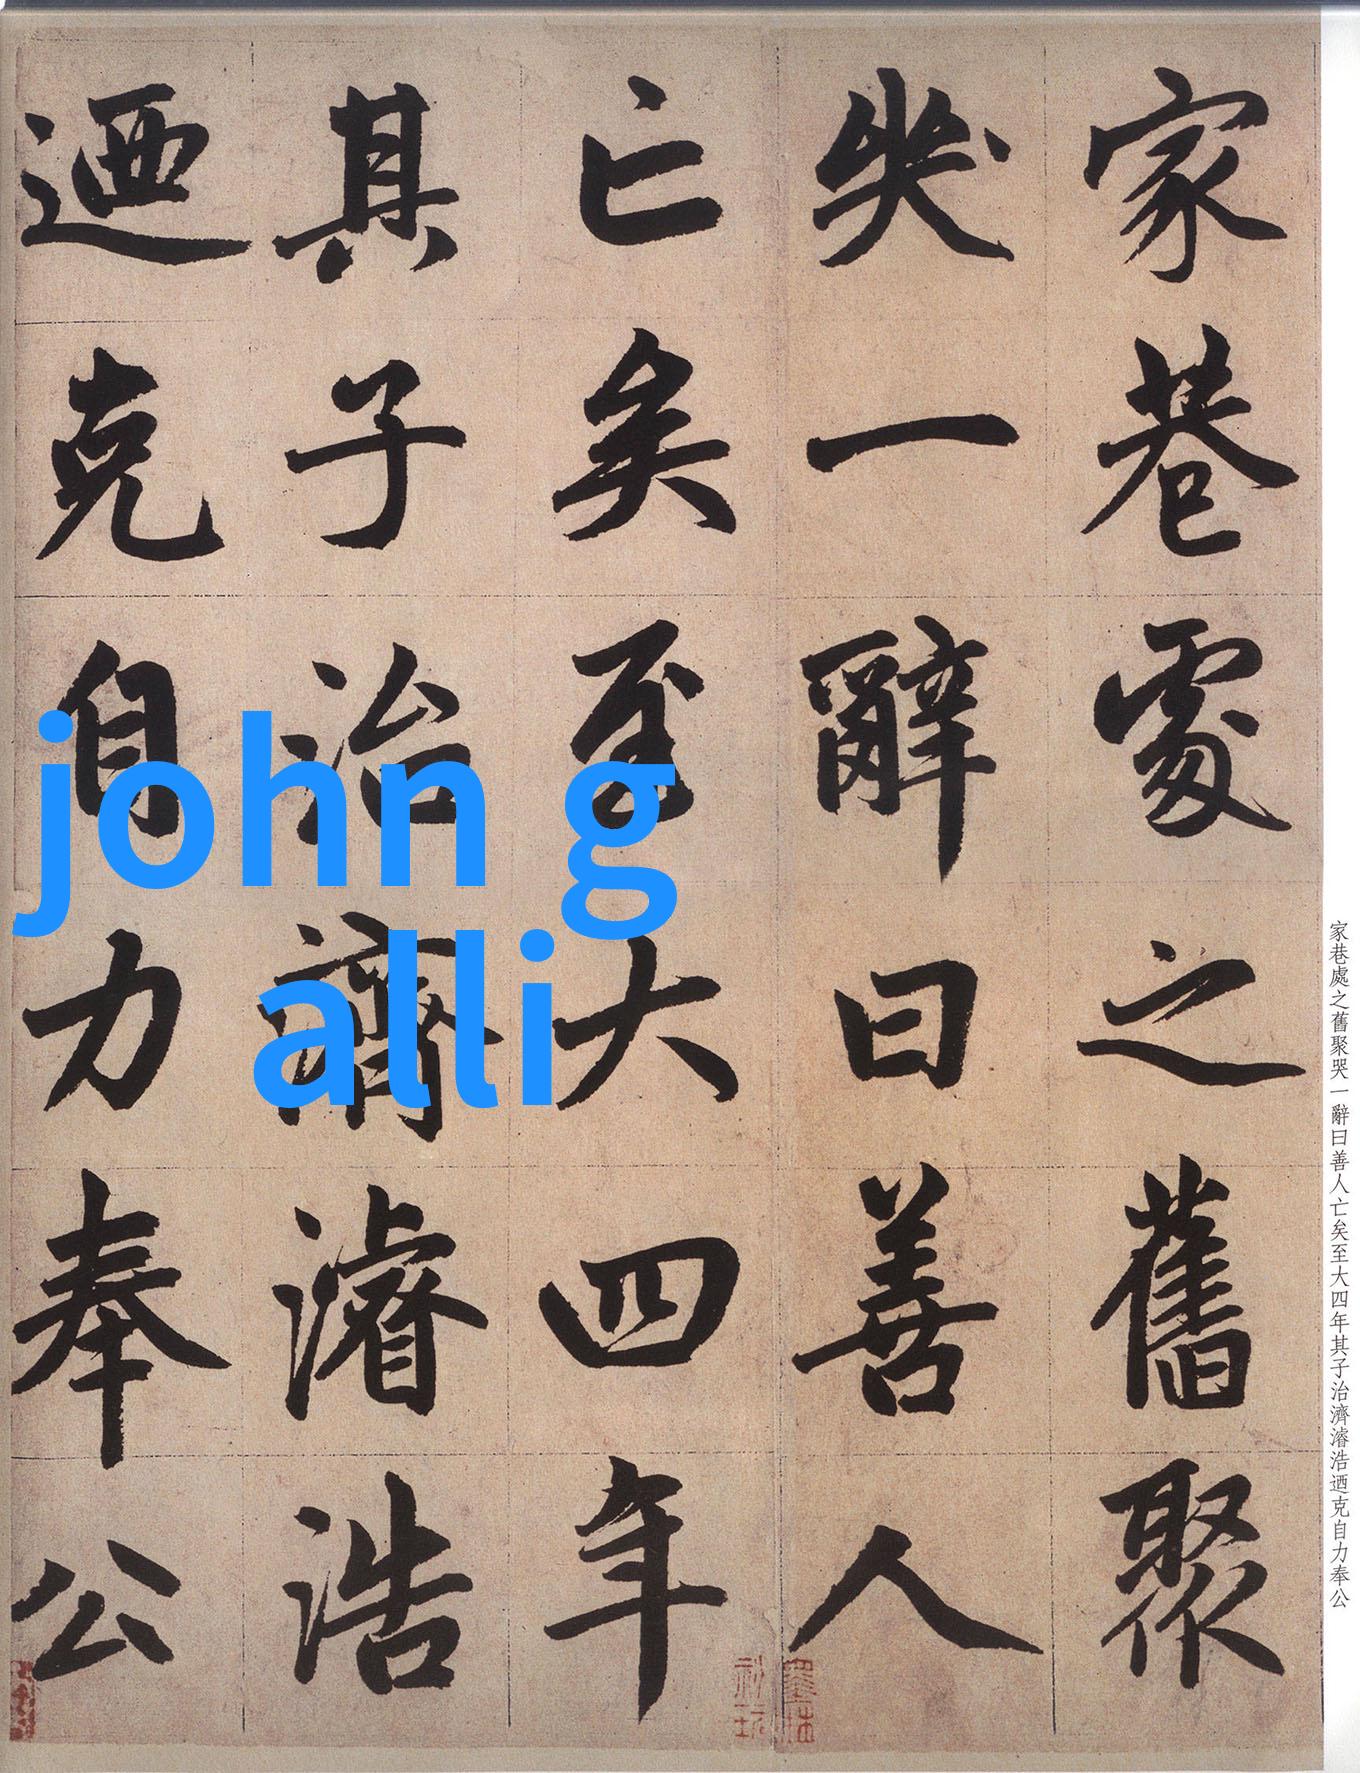 家巷處之舊聚
哭一辭曰善人
亡矣至大四年
其子治濟濬浩
迺克自力奉公
john g
alli
家巷處之舊聚哭一辭曰善人亡矣至大四年其子治濟濬浩迺克自力奉公